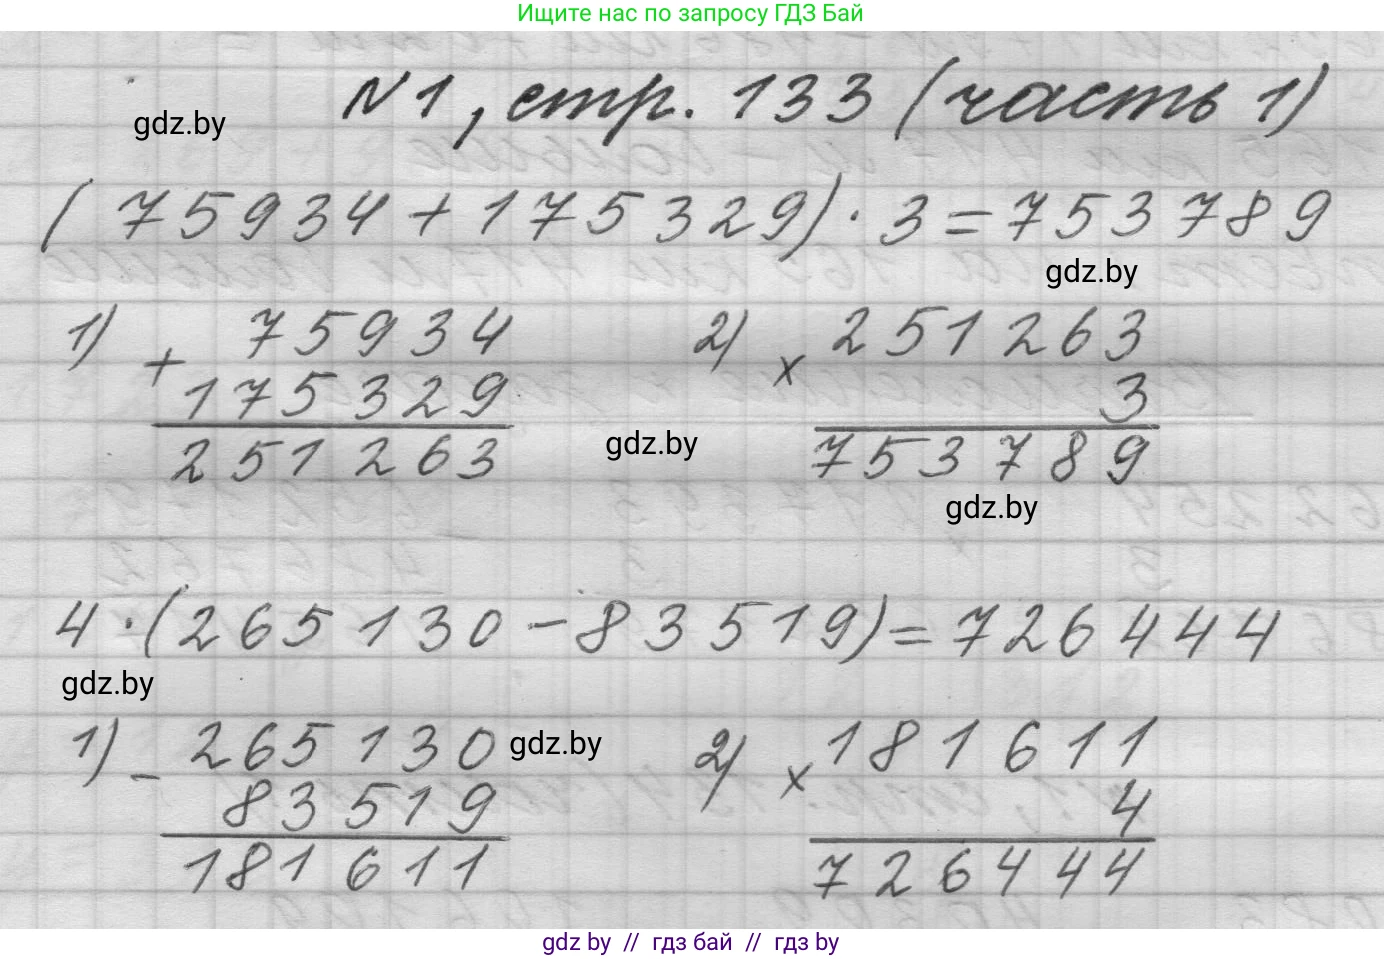 Ищите нас по запросу ГДЗ Бай
N1, стр. 133 (часть 1)
gdz.by
(75934+175329)·3=753789
gdz.by
1) 75934 2) 251263
+ ×
175329 3
251263 gdz.by 753789
gdz.by
4·(265130-83519)=726444
gdz.by
1) 265130 gdz.by 2) 181611
- ×
83519 4
181611 726444
gdz by // гдз бай // гдз by